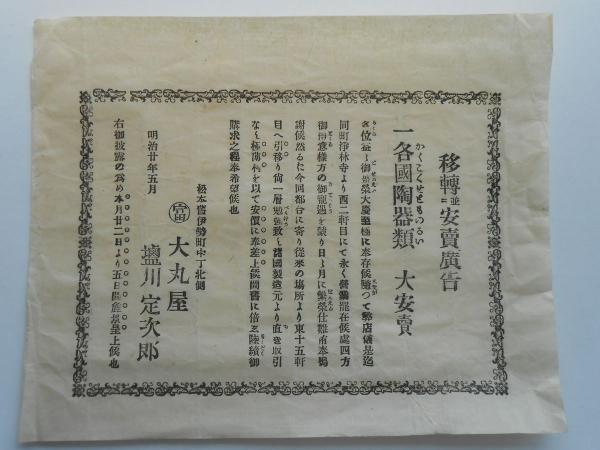 移轉並ニ安賣廣告
一各國陶器類 大安賣
各位益々御繁榮大慶至極に奉存候隨つて弊店儀是迄
同町淨林寺より西二軒目にて永く營業罷在候處四方
御得意樣方の御寵遇を蒙り日に月に繁榮仕難有奉鳴
謝候然るに今回都合に寄り從來の場所より東十五軒
目へ引移り尙一層勉強致し諸國製造元より直き取引
なし極薄利を以て安價に奉差上候間舊に倍し陸續御
購求之程奉希望候也
松本舊伊勢町中丁北側
大丸屋
明治廿年五月 鹽川定次郎
右御披露の爲め本月廿二日より五日間麁景呈上候也